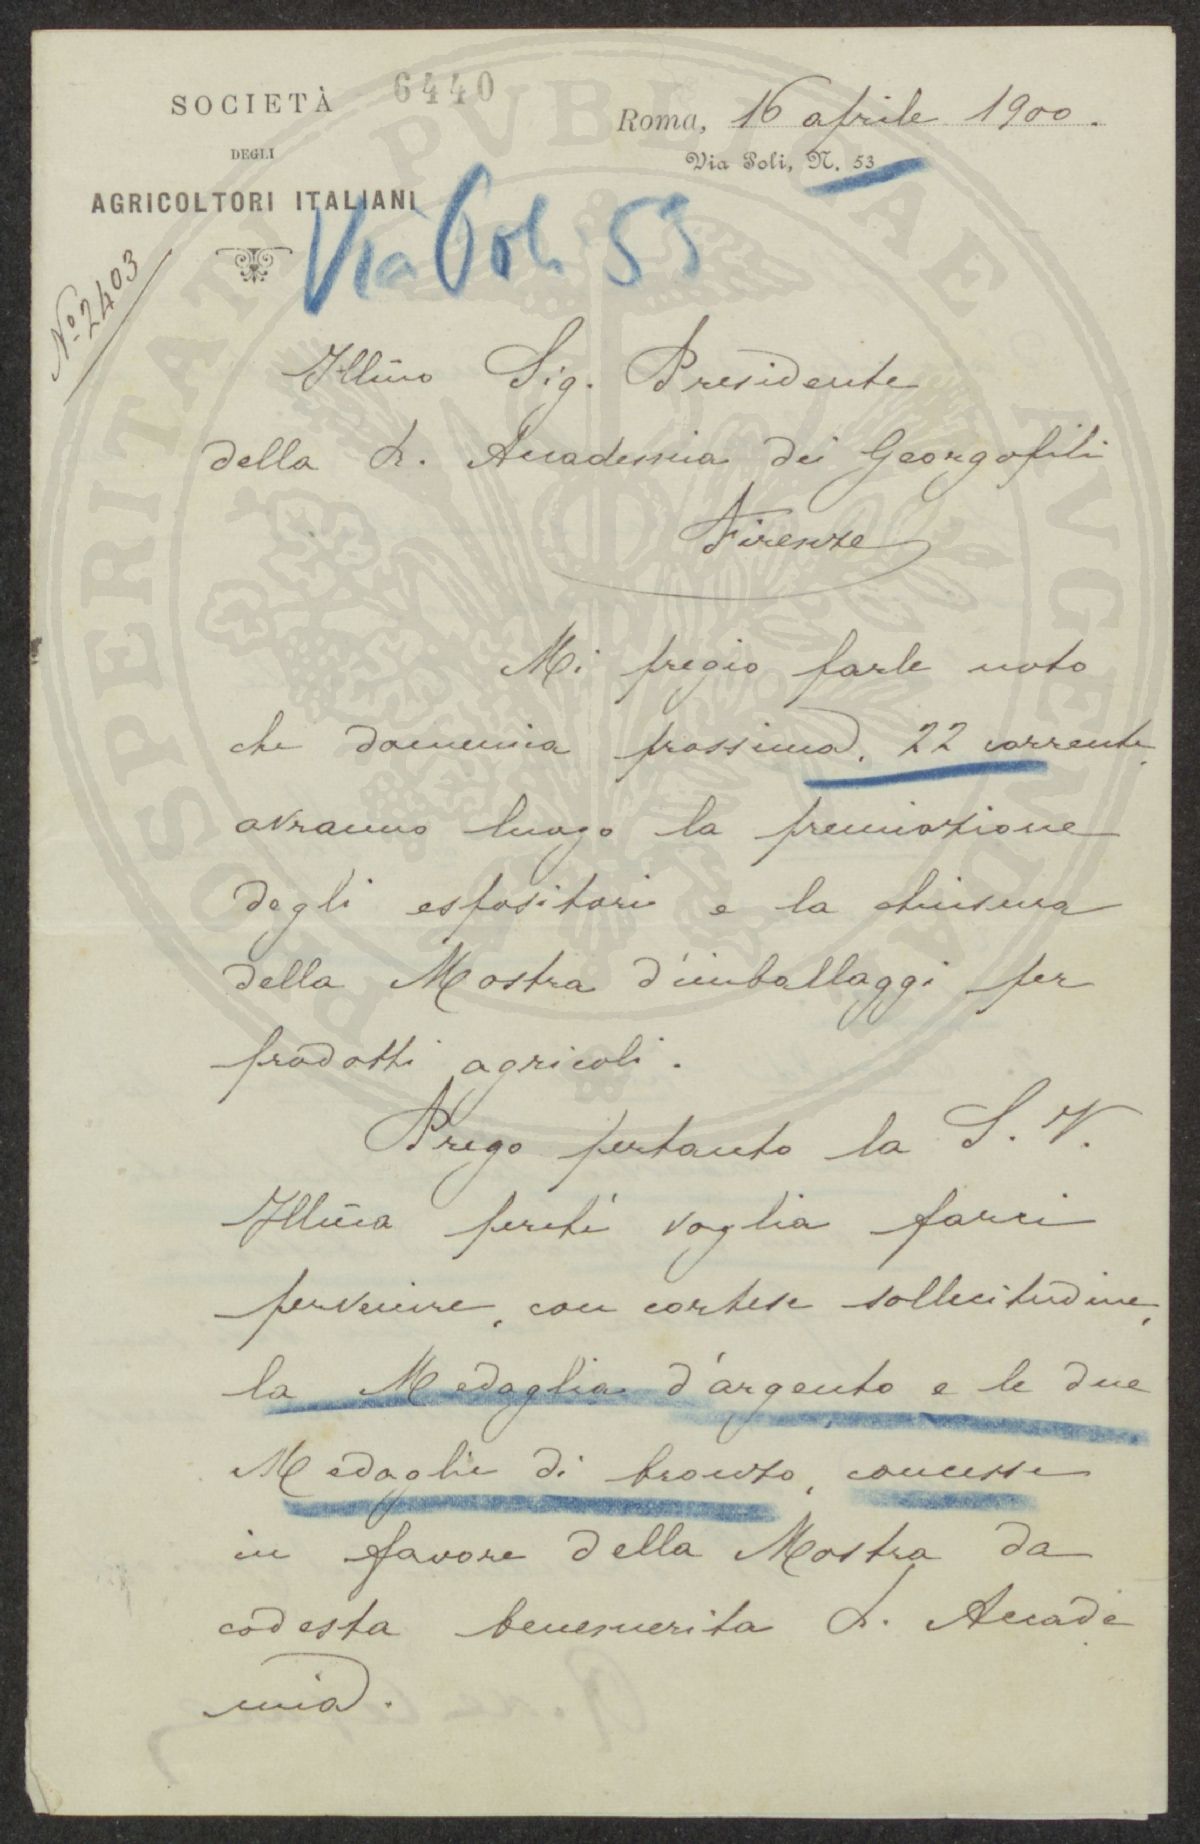 SOCIETÀ
DEGLI
AGRICOLTORI ITALIANI
6440
Roma, 16 aprile 1900.
Via Poli, N. 53
Via Poli 53
No. 2403
Illmo Sig. Presidente
della R. Accademia dei Georgofili
Firenze
Mi pregio farle noto
che domenica prossima, 22 corrente,
avranno luogo la premiazione
degli espositori e la chiusura
della Mostra d'imballaggi per
prodotti agricoli.
Prego pertanto la S. V.
Illma perché voglia farci
pervenire, con cortese sollecitudine,
la Medaglia d'argento e le due
Medaglie di bronzo, concesse
in favore della Mostra da
codesta benemerita R. Accade
mia.
PROSPERITATI PVBLICAE AVGENDAE